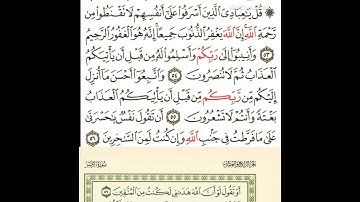 قُلْ يَٰعِبَادِىَ ٱلَّذِينَ أَسْرَفُوا۟ عَلَىٰٓ أَنفُسِهِمْ لَا تَقْنَطُوا۟ مِن
رَّحْمَةِ ٱللَّهِ إِنَّ ٱللَّهَ يَغْفِرُ ٱلذُّنُوبَ جَمِيعًا إِنَّهُۥ هُوَ ٱلْغَفُورُ ٱلرَّحِيمُ
٥٣ وَأَنِيبُوٓا۟ إِلَىٰ رَبِّكُمْ وَأَسْلِمُوا۟ لَهُۥ مِن قَبْلِ أَن يَأْتِيَكُمُ
ٱلْعَذَابُ ثُمَّ لَا تُنصَرُونَ ٥٤ وَٱتَّبِعُوٓا۟ أَحْسَنَ مَآ أُنزِلَ
إِلَيْكُم مِّن رَّبِّكُم مِّن قَبْلِ أَن يَأْتِيَكُمُ ٱلْعَذَابُ
بَغْتَةً وَأَنتُمْ لَا تَشْعُرُونَ ٥٥ أَن تَقُولَ نَفْسٌ يَٰحَسْرَتَىٰ
عَلَىٰ مَا فَرَّطتُ فِى جَنۢبِ ٱللَّهِ وَإِن كُنتُ لَمِنَ ٱلسَّٰخِرِينَ ٥٦
سُورَةُ الزُّمَرِ
أَوْ تَقُولَ لَوْ أَنَّ ٱللَّهَ هَدَىٰنِى لَكُنتُ مِنَ ٱلْمُتَّقِينَ ٥٧